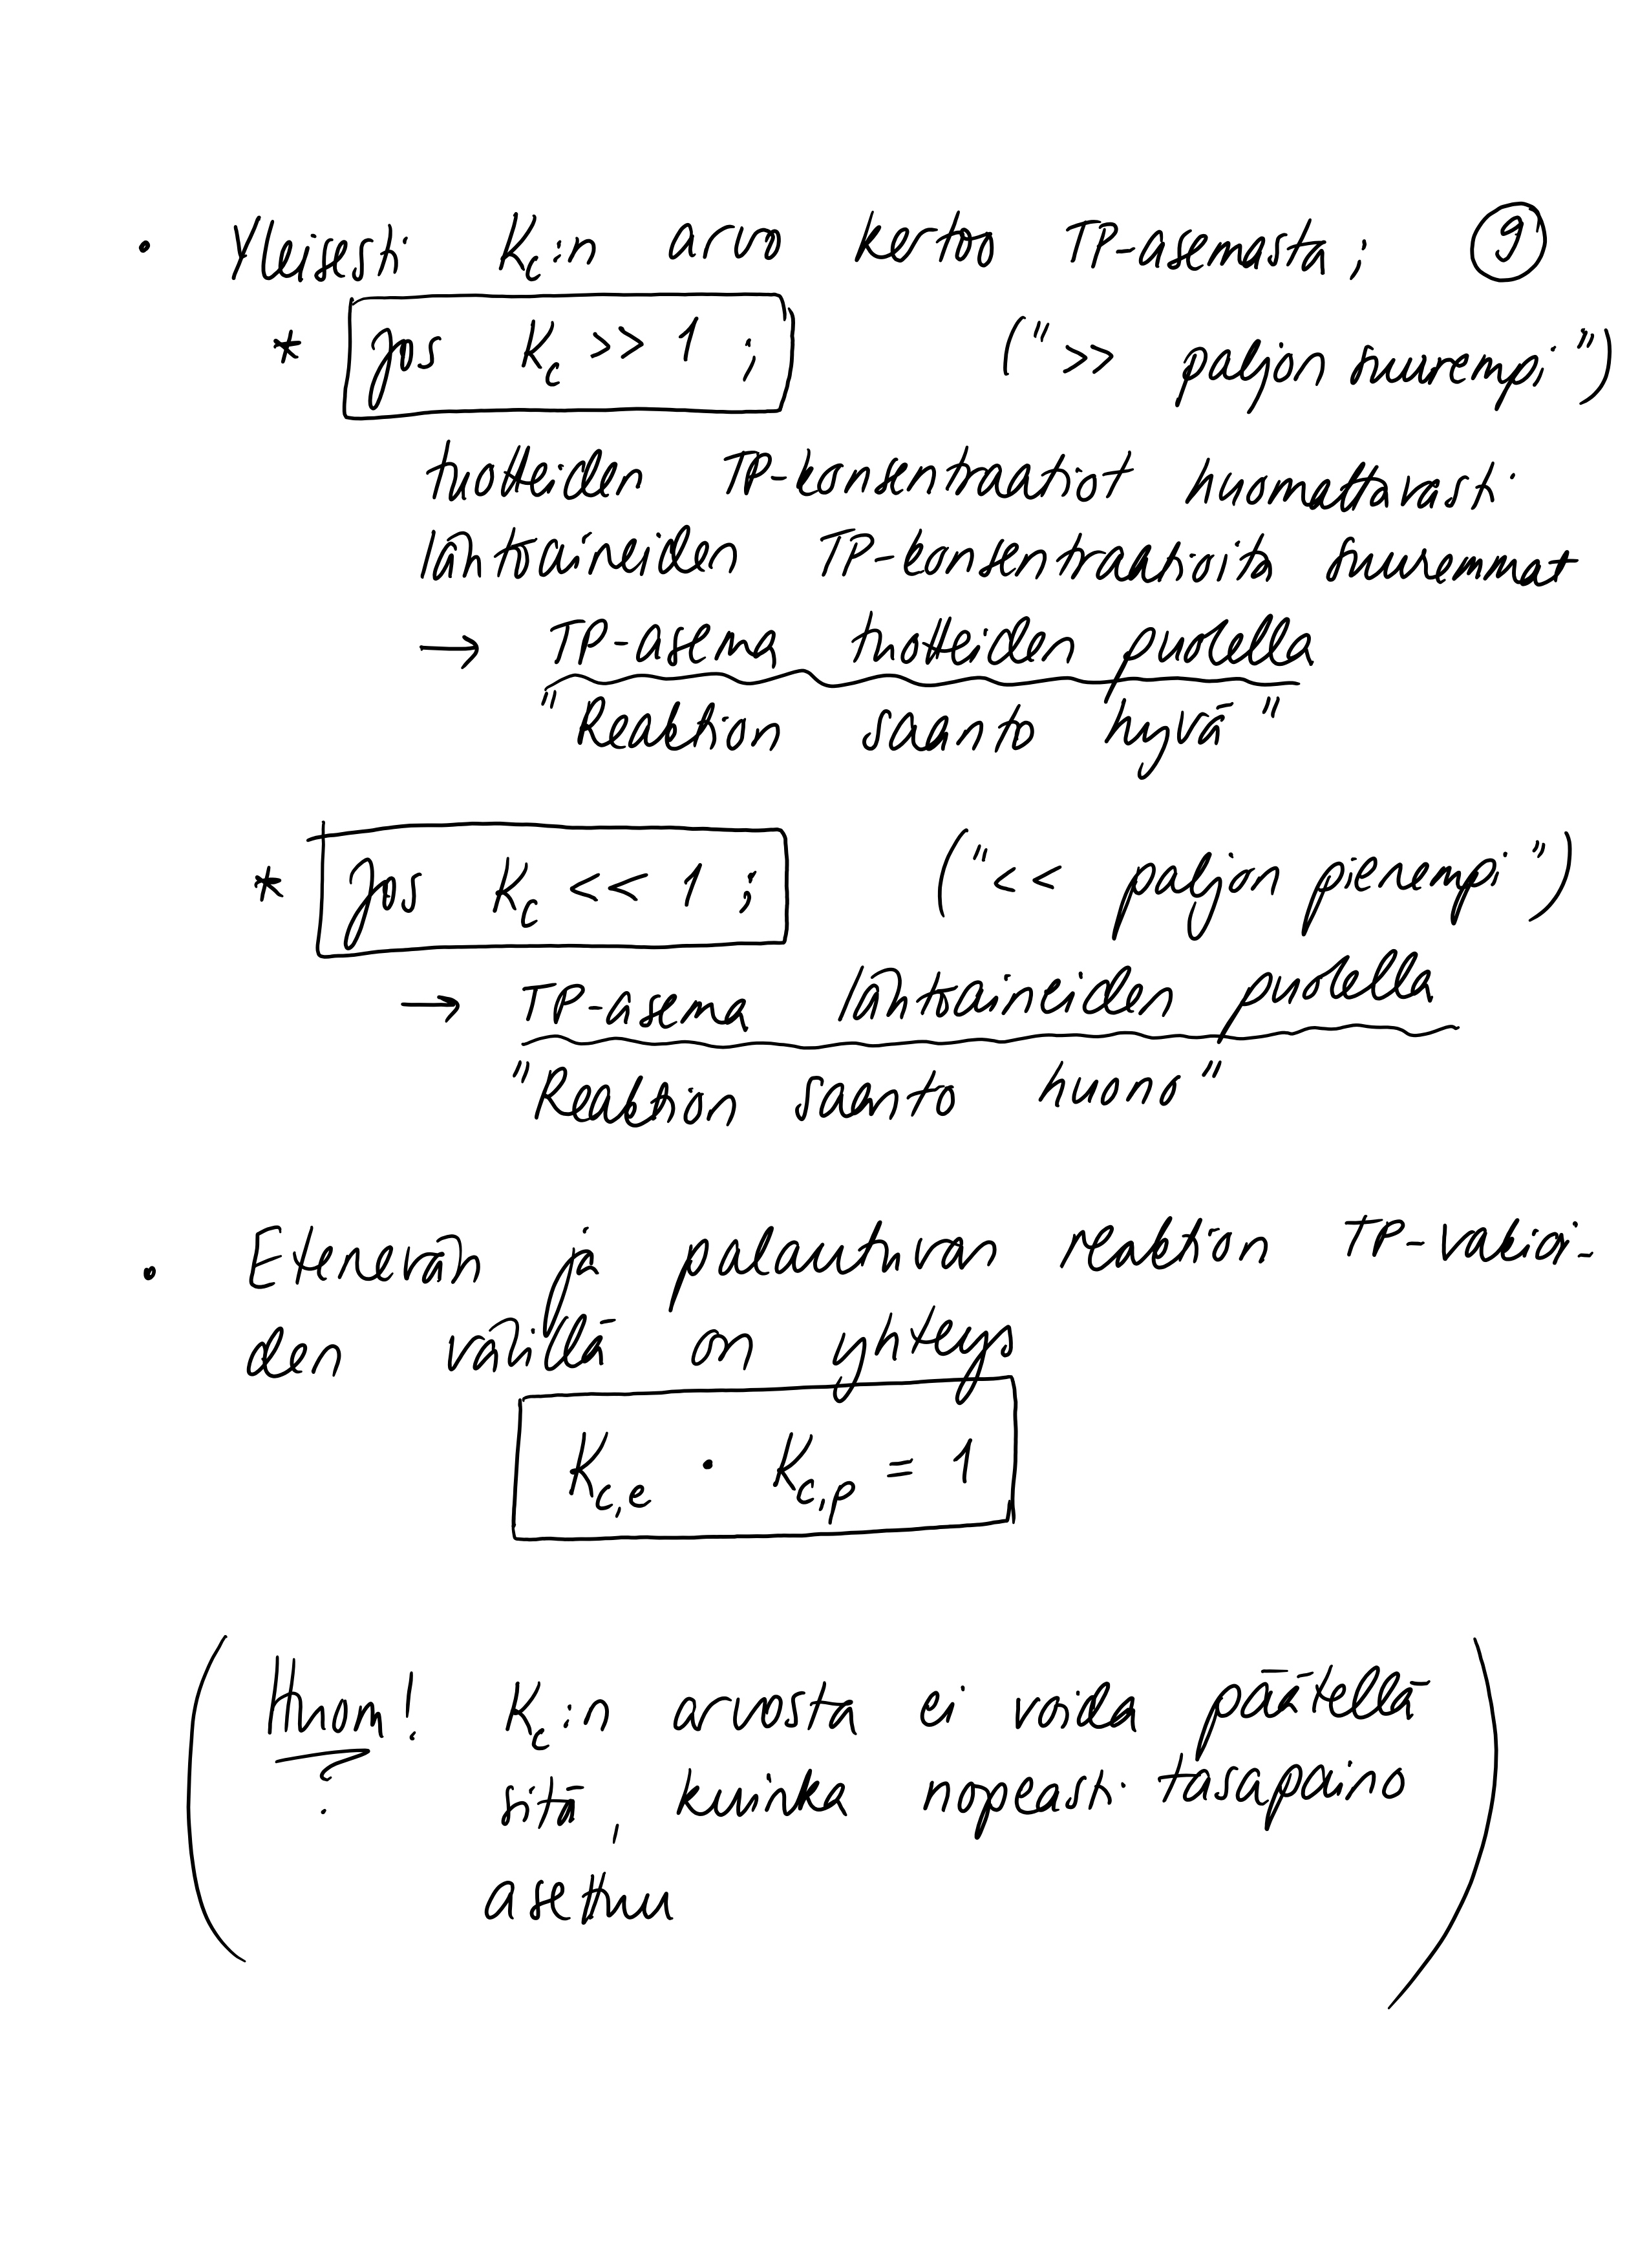 • Yleisesti Kc:n arvo kertoo TP-asemasta; 9
* Jos Kc >> 1 ; (">> paljon suurempi")
tuotteiden TP-konsentraatiot huomattavasti
lähtöaineiden TP-konsentraatioita suuremmat
→ TP-asema tuotteiden puolella
"Reaktion saanto hyvä"
* Jos Kc << 1 ; ("<< paljon pienempi")
→ TP-asema lähtöaineiden puolella
"Reaktion saanto huono"
• Etenevän ja palautuvan reaktion TP-vakioi-
den välillä on yhteys
Kc,e · Kc,p = 1
(Huom! Kc:n arvosta ei voida päätellä
sitä, kuinka nopeasti tasapaino
asettuu)